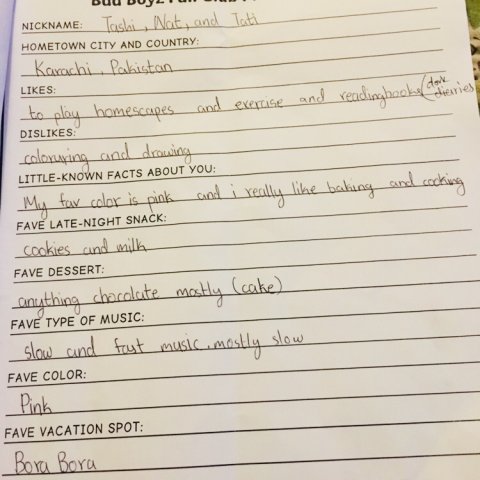 Bad Boyz Fan Club
NICKNAME: Tashi, Nat, and Tati
HOMETOWN CITY AND COUNTRY:
Karachi, Pakistan
LIKES:
to play homescapes and exercise and reading books (dork diearies
DISLIKES:
colouruing and drawing
LITTLE-KNOWN FACTS ABOUT YOU:
My fav color is pink and i really like baking and cooking
FAVE LATE-NIGHT SNACK:
cookies and milk
FAVE DESSERT:
anything chocolate mostly (cake)
FAVE TYPE OF MUSIC:
slow and fast music, mostly slow
FAVE COLOR:
Pink
FAVE VACATION SPOT:
Bora Bora